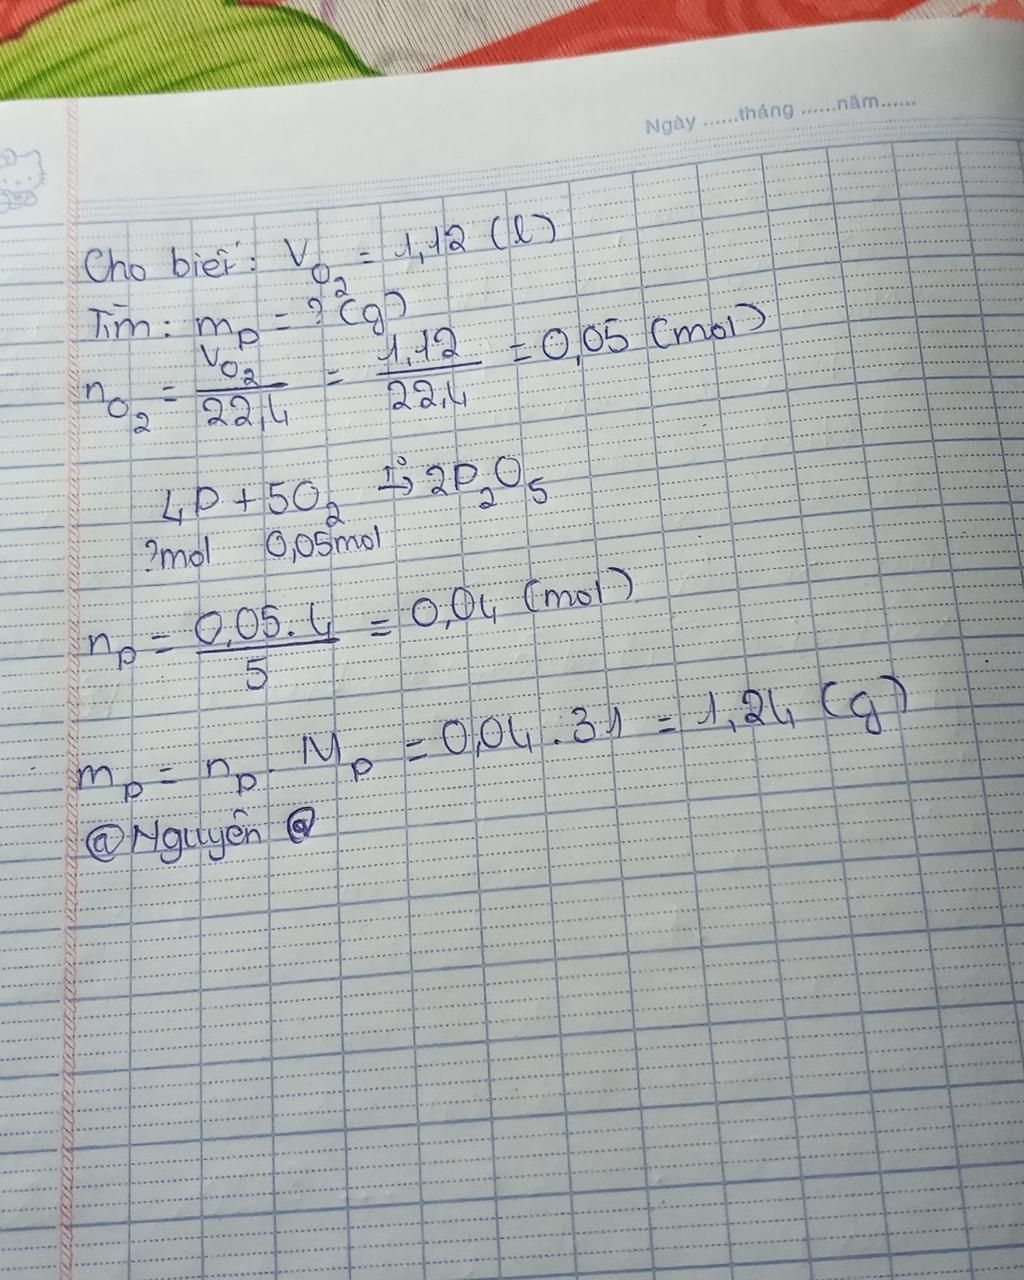 Ngày ......tháng ......năm......
Cho biết: V_O₂ = 1,12 (l)
Tìm: m_P = ? (g)
n_O₂ = V_O₂/22,4 = 1,12/22,4 = 0,05 (mol)
4P + 5O₂ t°→ 2P₂O₅
?mol 0,05mol
n_P = 0,05.4/5 = 0,04 (mol)
m_P = n_P . M_P = 0,04 . 31 = 1,24 (g)
@Nguyên @